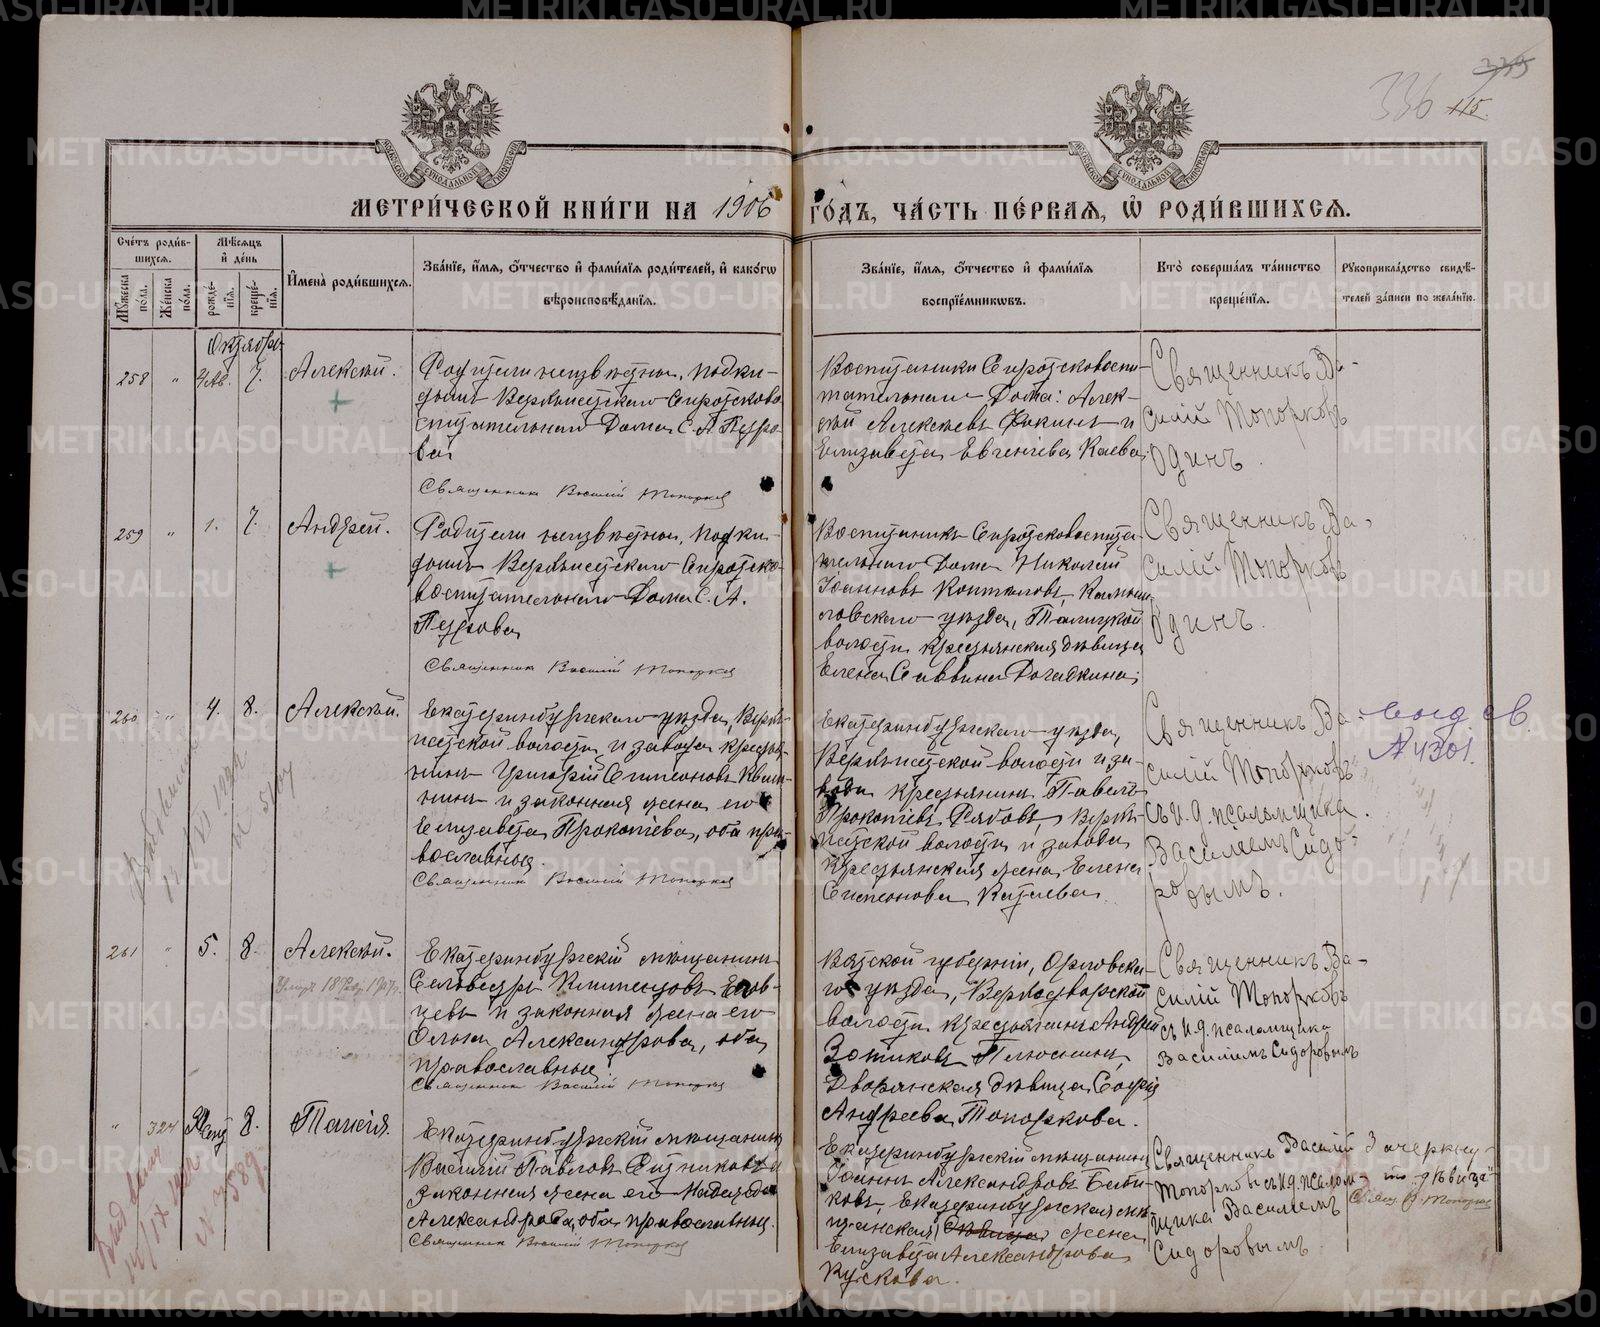 336 115
МЕТРИ́ЧЕСКОЙ КНИ́ГИ НА 1906 ГО́ДЪ, ЧА́СТЬ ПЕ́РВАЯ, Ѽ РОДИ́ВШИХСЯ.
Счетъ роди́в-
шихся.
Мꙋжеска по́ла.
Же́нска по́ла.
Мѣ́сяцъ
и҆ де́нь
рожде́-
нїѧ.
креще́-
нїѧ.
И҆мена̀ роди́вшихся.
Зва́нїе, и҆́мѧ, ѻ҆́тчество и҆ фами́лїѧ роди́телей, и҆ како́гѡ
вѣроисповѣ́данїѧ.
Зва́нїе, и҆́мѧ, ѻ҆́тчество и҆ фами́лїѧ
воспрїе́мникѡвъ.
Кто̀ соверша́лъ та́инство
креще́нїѧ.
Рꙋкоприкла́дство свидѣ́-
телей за́писи по жела́нїю.
Октябрь
258 " 4 Ав. 7. Алексѣй.
Родители неизвѣстны, подки-
дышъ Верхъисетскаго Сиротсково
спитательнаго Дома С. А. Петро-
ва
Священникъ Василій Топорковъ
Воспитанники Сиротсковоспи-
тательнаго Дома: Алек-
сѣй Алексѣевъ Фокинъ и
Елизавета Евгеніева Каева
Священникъ Ва-
силій Топорковъ
Одинъ.
259 " 1. 7. Андрей.
Родители неизвѣстны, подки-
дышъ Верхъисетскаго Сиротско-
воспитательнаго Дома С. А.
Петрова
Священникъ Василій Топорковъ
Воспитанникъ Сиротсковоспита-
тельнаго Дома Николай
Іоанновъ Коптяловъ, Камыш-
ловскаго уѣзда, Талицкой
волости крестьянская дѣвица
Елена Саввина Догадкина
Священникъ Ва-
силій Топорковъ
Одинъ.
260 " 4. 8. Алексѣй.
Екатеринбургскаго уѣзда, Верхъ-
исетской волости и завода крестья-
нинъ Григорій Симеоновъ
и законная жена его
Елизавета Прокопіева, оба пра-
вославные.
Священникъ Василій Топорковъ
Екатеринбургскаго уѣзда,
Верхъисетской волости и за-
вода крестьянинъ Павелъ
Прокопіевъ Рябовъ, Верхъ-
исетской волости и завода
крестьянская жена Елена
Симеонова Катаева.
Священникъ Ва-
силій Топорковъ
съ и. д. псаломщика
Василіемъ Сидо-
ровымъ.
св.
4301.
261 " 5. 8. Алексѣй.
Екатеринбургскій мѣщанинъ
Селивестръ Климентовъ
и законная жена его
Ольга Александрова, оба
православные.
Священникъ Василій Топорковъ
Вятской губерніи, Орловска-
го уѣзда, Верходворской
волости крестьянинъ Андрей
Зотиковъ
Дворянская дѣвица Софія
Андреева Топоркова.
Священникъ Ва-
силій Топорковъ
съ и. д. псаломщика
Василіемъ Сидоровымъ
" 324 8. Таисія.
Екатеринбургскій мѣщанинъ
Василій Павловъ Ситниковъ и
законная жена его Надежда
Александрова, оба православные.
Священникъ Василій Топорковъ
Екатеринбургскій мѣщанинъ
Іоаннъ Александровъ
Екатеринбургская мѣ-
щанская дѣвица жена
Елизавета Александрова
Кускова.
Священникъ Василій
Топорковъ съ и. д. псалом-
щика Василіемъ
Сидоровымъ
Зачеркну-
то "дѣвица"
Свящ. В. Топорковъ
METRIKI.GASO-URAL.RU